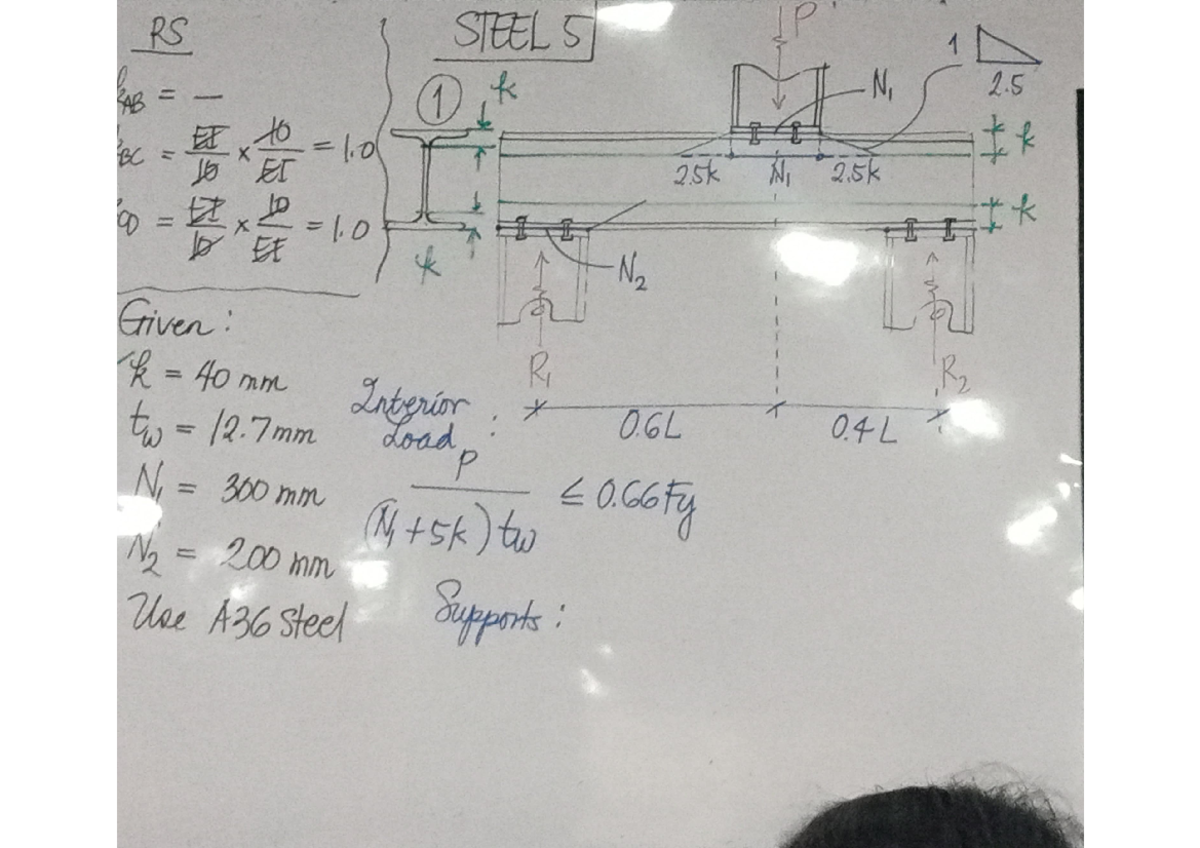 RS
k_AB = —
k_BC = EI/10 × 10/EI = 1.0
k_CD = EI/10 × 10/EI = 1.0
STEEL 5
1
k
P
N₁
1
2.5
k
2.5k N₁ 2.5k
k
k
N₂
R₁
R₂
0.6L 0.4L
Given:
k = 40 mm
tw = 12.7mm
N₁ = 300 mm
N₂ = 200 mm
Use A36 Steel
Interior
Load :
P/(N₁+5k)tw ≤ 0.66Fy
Supports: